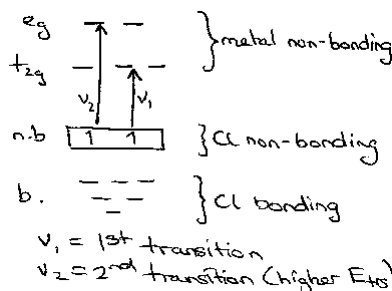 eg
} metal non-bonding
t2g
ν2
ν1
n.b 1 1 } Cl non-bonding
b. } Cl bonding
ν1 = 1st transition
ν2 = 2nd transition (higher Etrs)